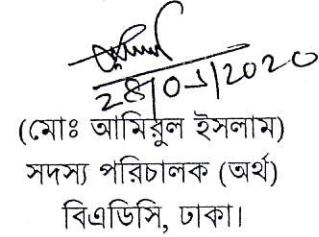 28/01/2020
(মোঃ আমিরুল ইসলাম)
সদস্য পরিচালক (অর্থ)
বিএডিসি, ঢাকা।